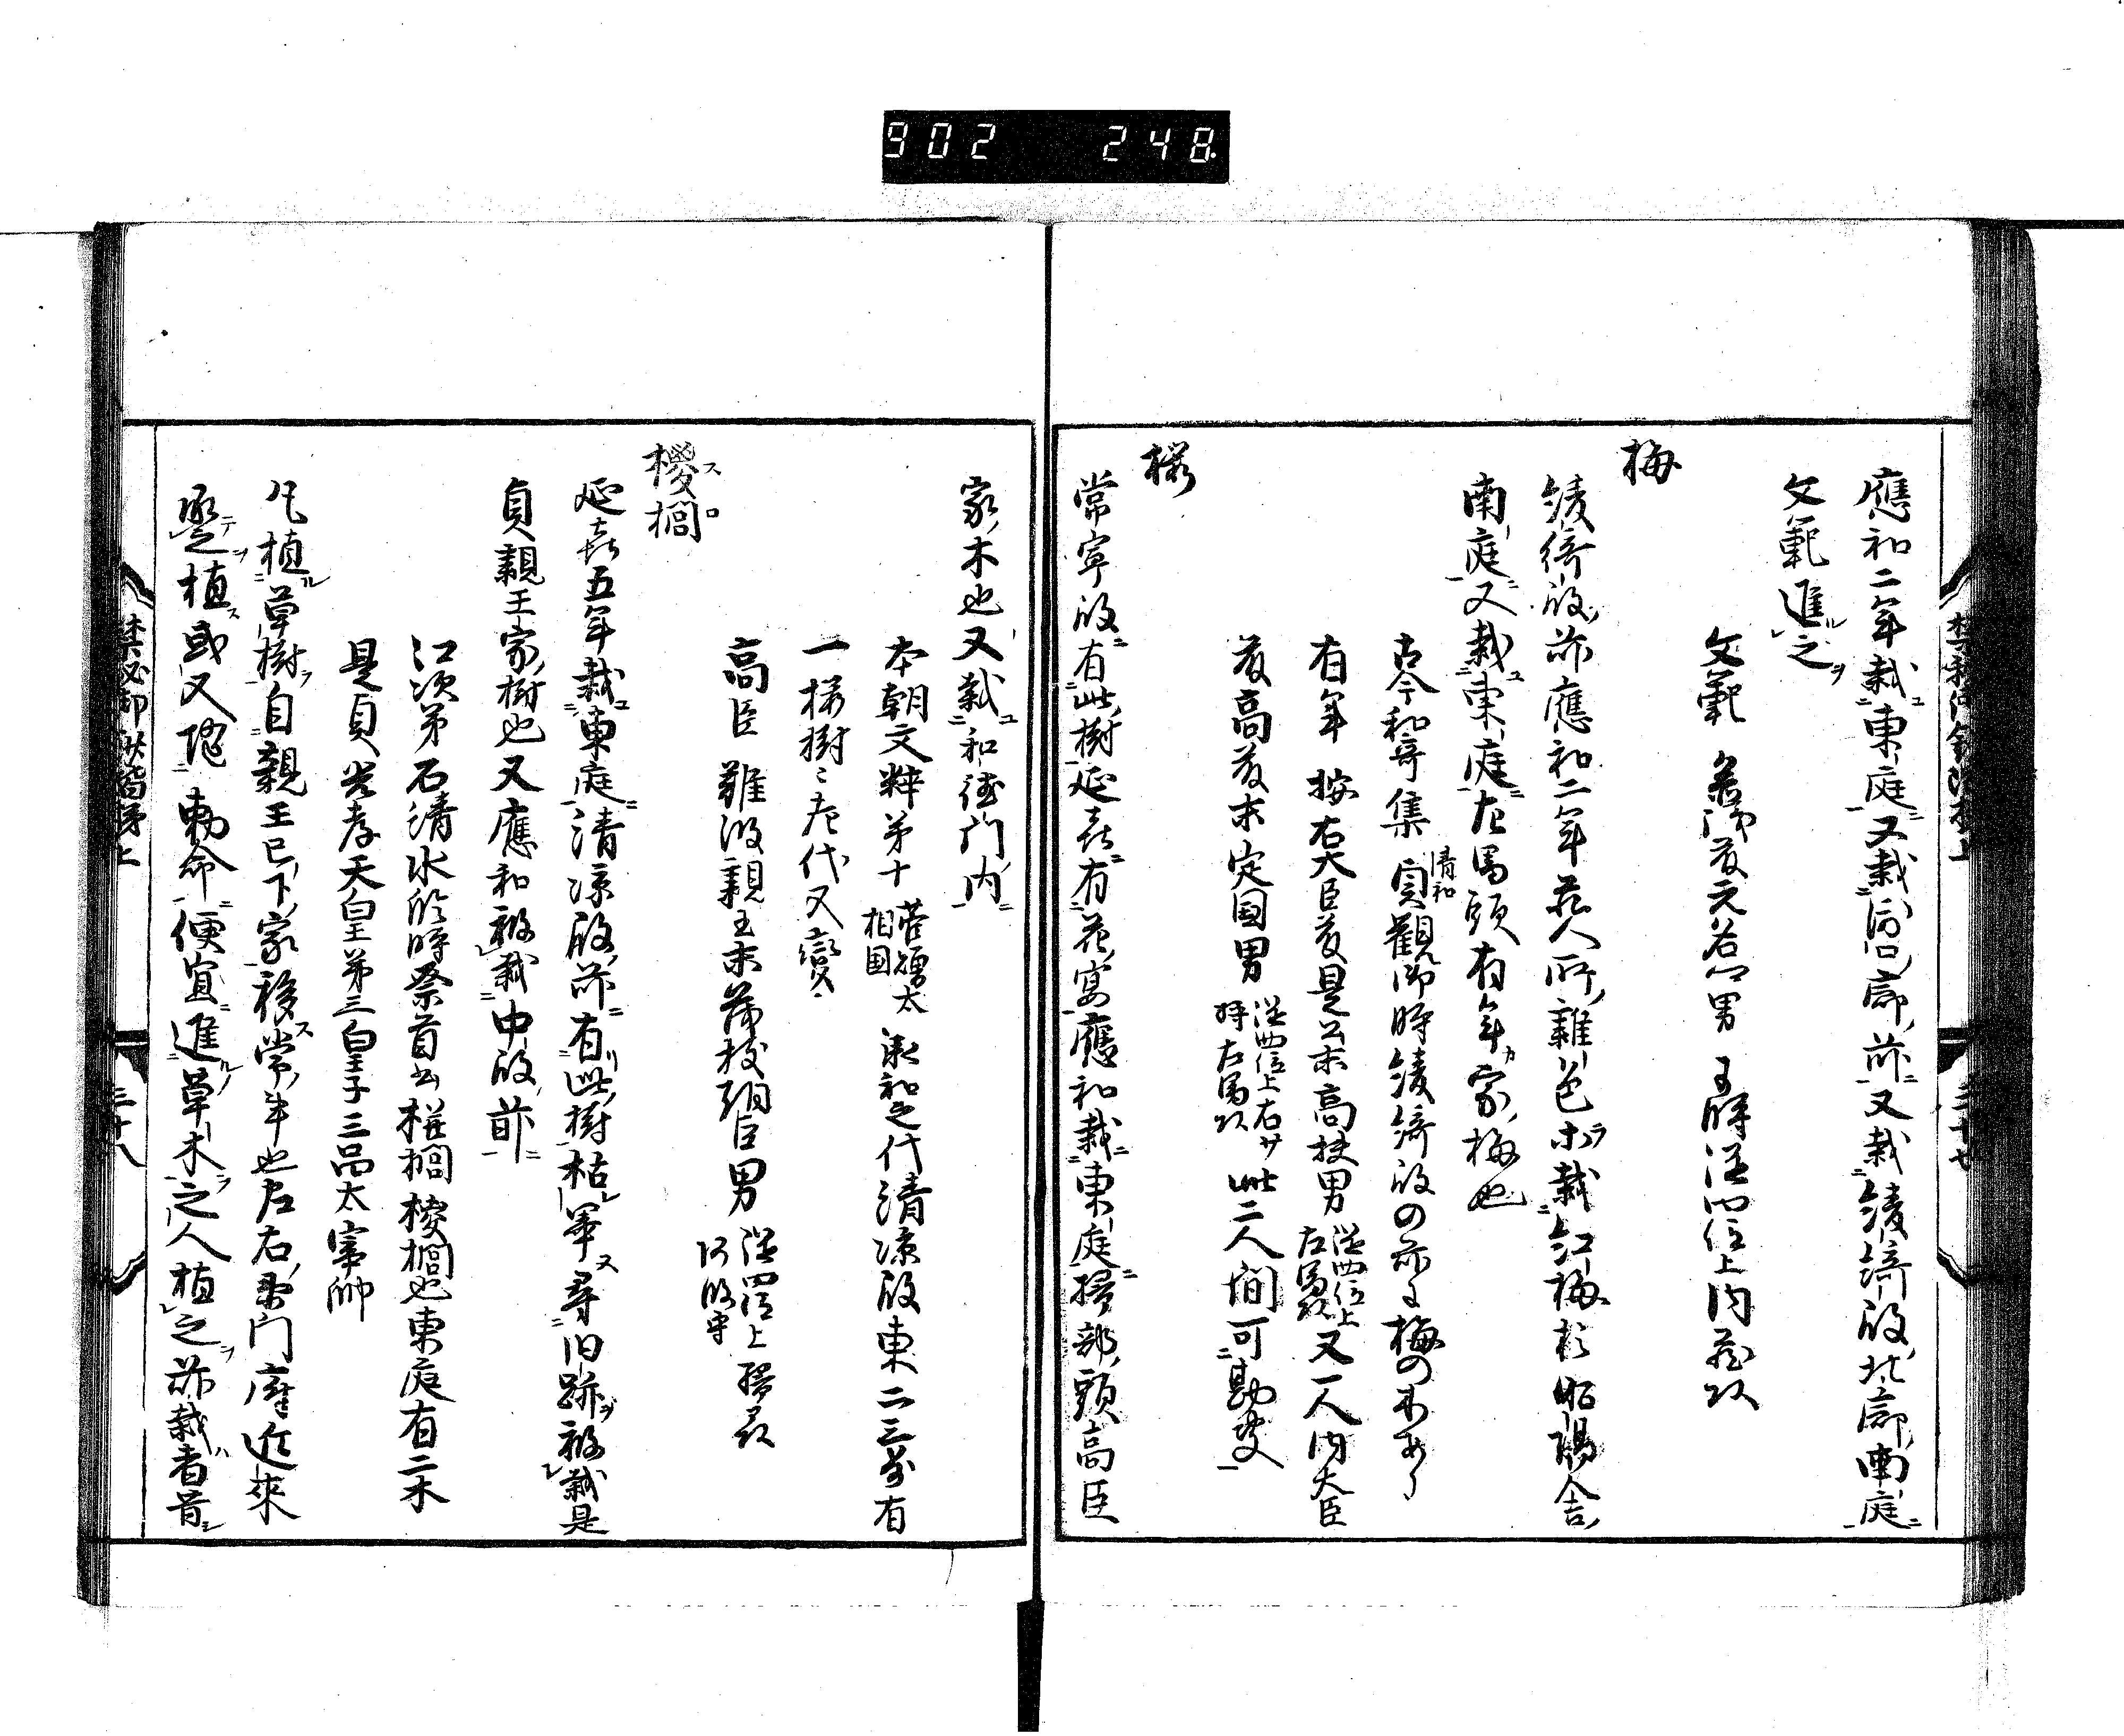 902 248
應和二年栽東庭又栽后町廊前又栽綾綺殿北廊南庭
文範進之
文範 参議藤元名一男 于時従四位上内蔵頭
梅
綾綺殿前應和二年蔵人所雑色等栽紅梅於昭陽舎
南庭又栽東庭左馬頭有年家梅也
古今和哥集 貞觀御時綾綺殿の前に梅の木あり
清和
有年 按右大臣藤是公末高扶男 従四位上左馬頭 又一人内大臣
藤高藤末定國男 従四位上右 時右馬頭 此二人間可勘決
桜
常寧殿有此樹延喜有花宴應和栽東庭掃部頭高臣
家木也又栽和徳門内
本朝文粹第十 菅贈太相国 承和之代清涼殿東二三歩有
一桜樹〻老代又變〻
高臣 難波親王末茂枝朝臣男 従四位上 掃部頭 阿波守
椶櫚
スロ
延喜五年栽東庭清凉殿前有此樹枯畢尋旧跡被栽是
貞親王家樹也又應和被栽中殿前
江次第石清水臨時祭首書椶櫚椶櫚也東庭有二木
是貞 光孝天皇第三皇子三品太宰帥
凡植草樹自親王已下家移常事也左右衛門府進來
殖之植或又随勅命便宜進草木之人植之前栽者首
禁秘御 階第上
三十八
三十七